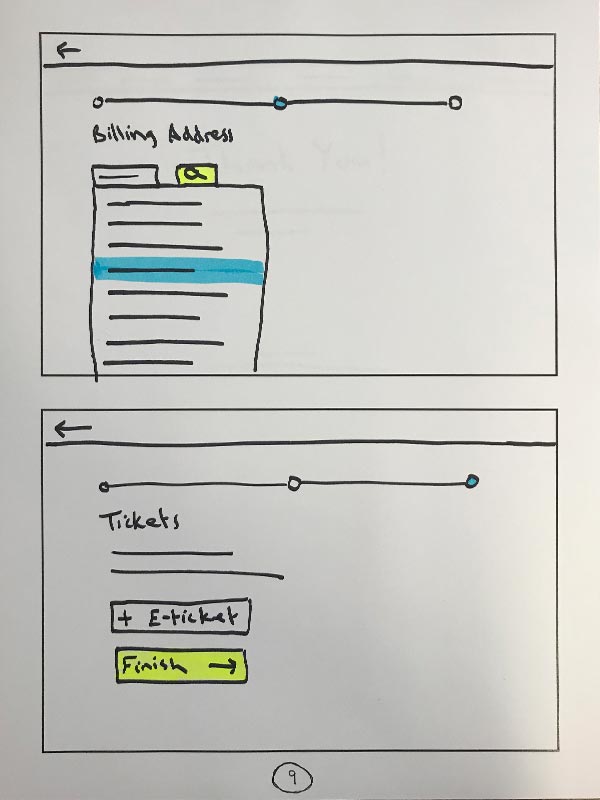 Billing Address
Tickets
+ E-ticket
Finish →
9